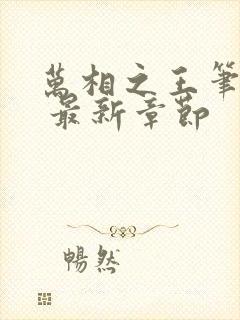 萬相之王筆
最新章節
暢然